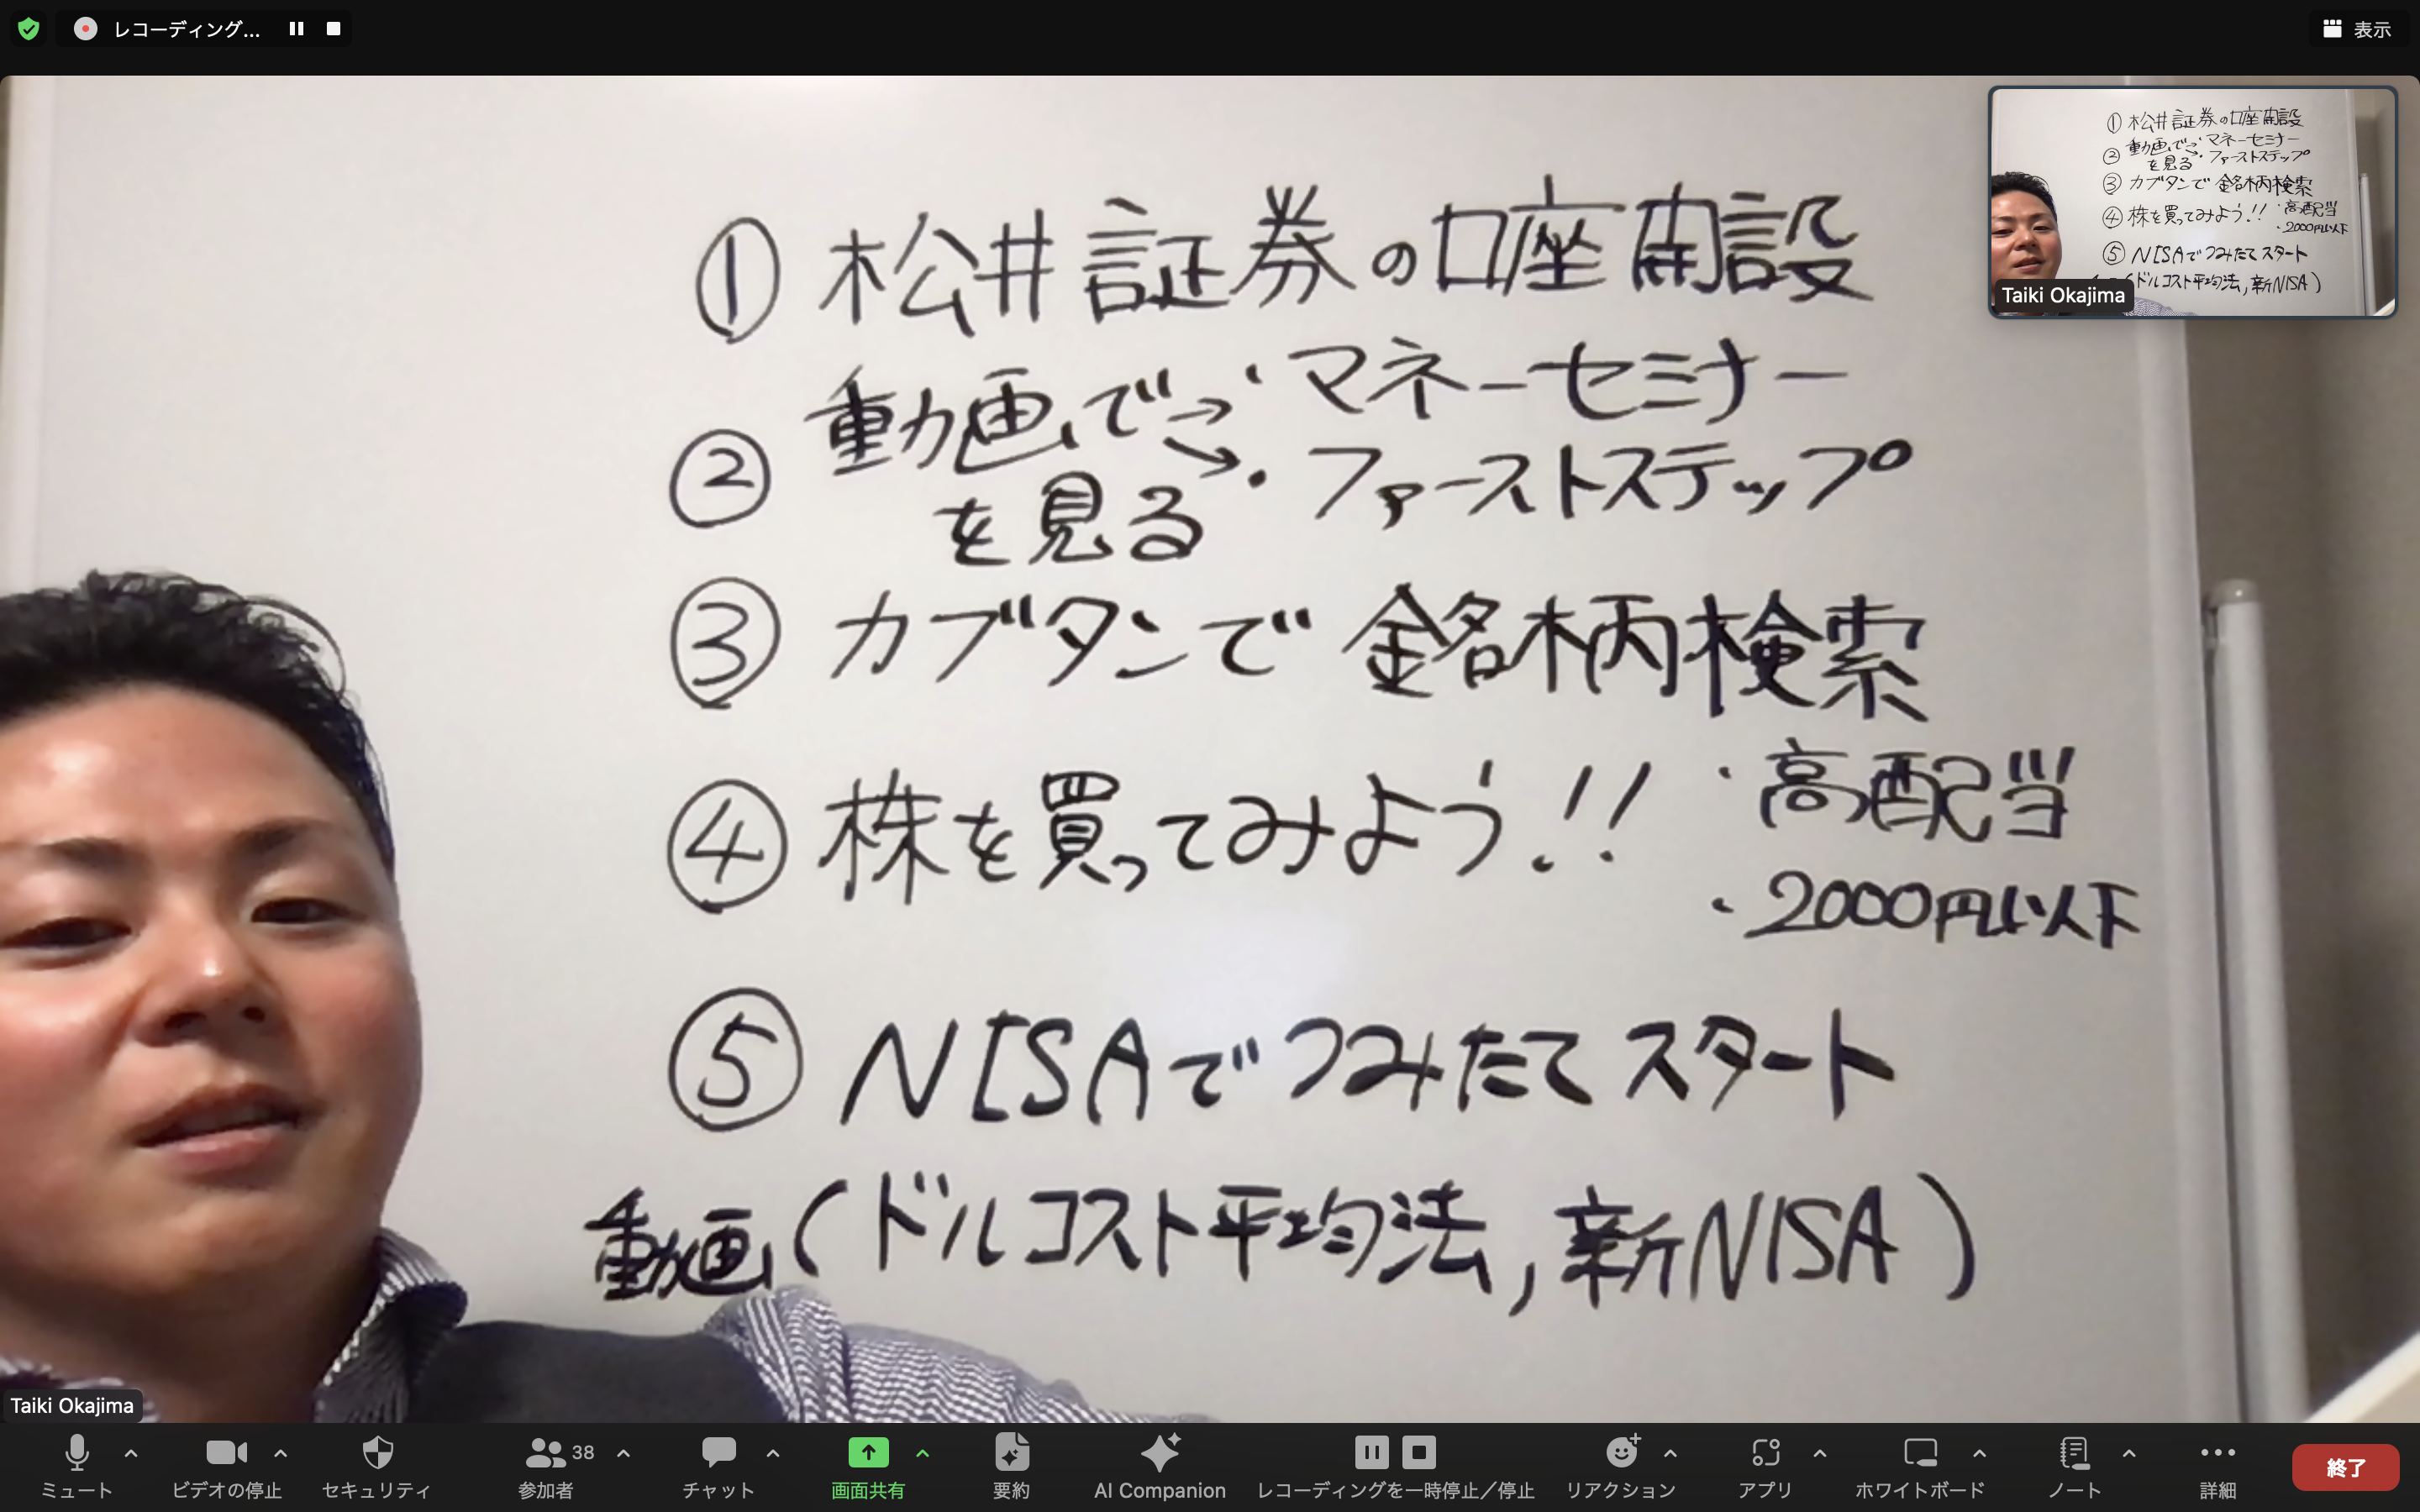 レコーディング...
表示
① 松井証券の口座開設
② 動画で→・マネーセミナー
を見る→・ファーストステップ
③ カブタンで 銘柄検索
④ 株を買ってみよう!! ・高配当
・2000円以下
⑤ NISAでつみたてスタート
動画(ドルコスト平均法, 新NISA)
① 松井証券の口座開設
② 動画で→・マネーセミナー
を見る→・ファーストステップ
③ カブタンで 銘柄検索
④ 株を買ってみよう!! ・高配当
・2000円以下
⑤ NISAでつみたてスタート
(ドルコスト平均法, 新NISA)
Taiki Okajima
Taiki Okajima
ミュート
ビデオの停止
セキュリティ
参加者 38
チャット
画面共有
要約
AI Companion
レコーディングを一時停止/停止
リアクション
アプリ
ホワイトボード
ノート
詳細
終了